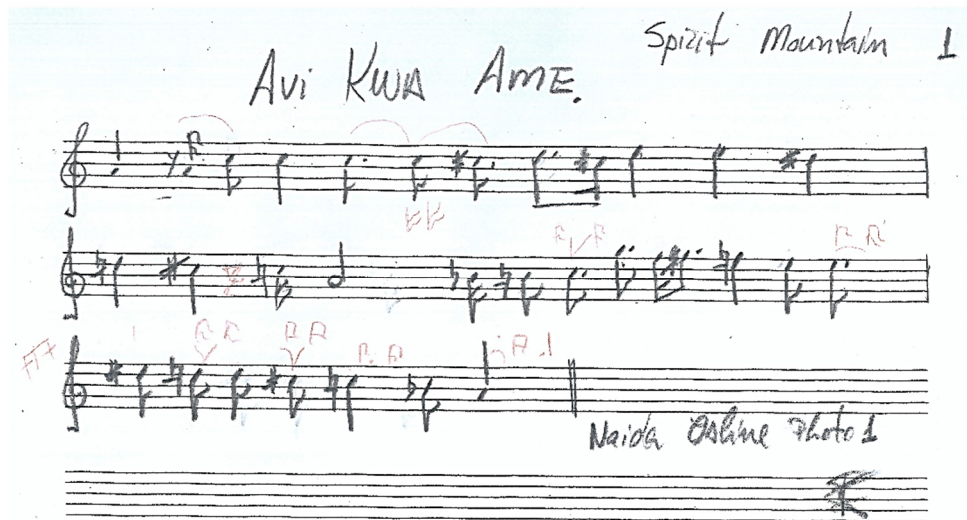 Spirit Mountain 1
AVI KWA AME.
Naida Osline Photo 1